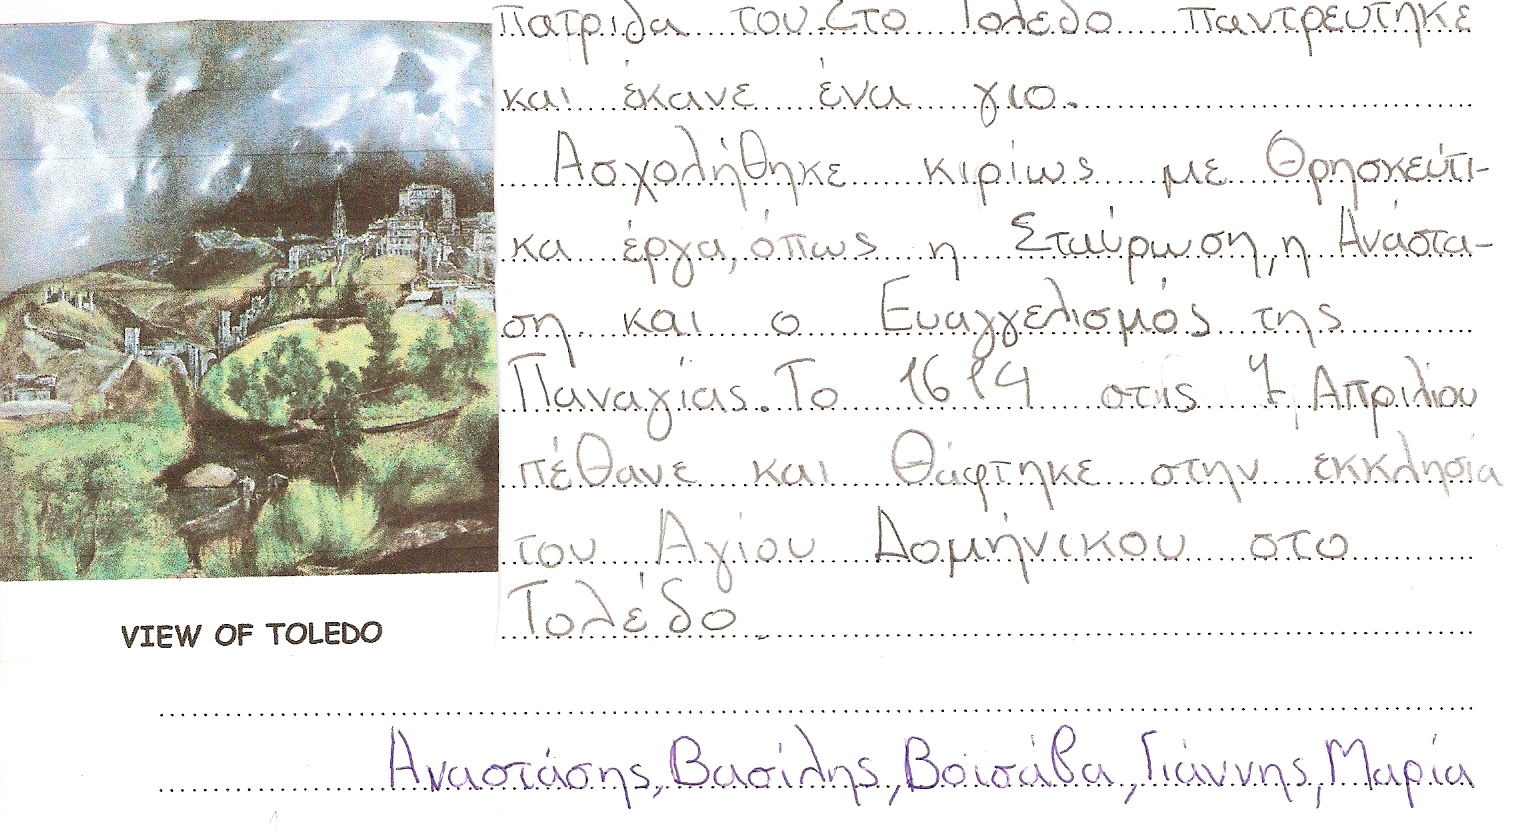 πατρίδα του. Στο Τολέδο παντρεύτηκε
και έκανε ένα γιο.
Ασχολήθηκε κιρίως με Θρησκεύτι-
κα έργα, όπως η Σταύρωση, η Ανάστα-
ση και ο Ευαγγελισμός της
Παναγίας. Το 1614 στις 7 Απριλίου
πέθανε και θάφτηκε στην εκκλησία
του Αγίου Δομήνικου στο
Τολέδο.
VIEW OF TOLEDO
Αναστάσης, Βασίλης, Βοϊσάβα, Γιάννης, Μαρία